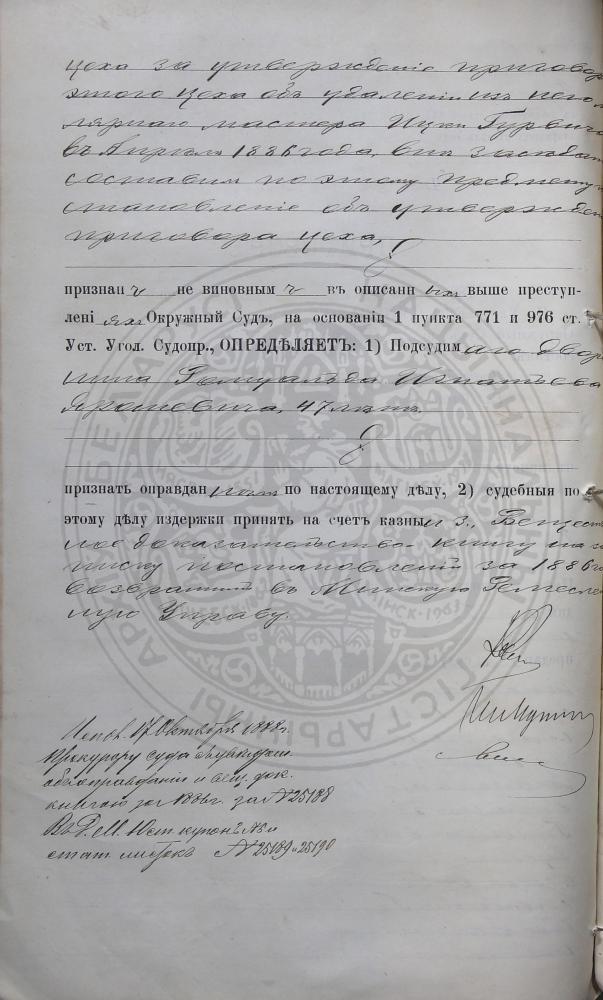 цеха за утвержденіе приговора
этого цеха объ удаленіи изъ него
лярнаго мастера Ицки Гурвича
въ Апрѣлѣ 1886 года, внѣ засѣдан
составилъ по этому предмету
становленіе объ утвержден
приговора цеха,
признан ъ не виновным ъ въ описанн ыхъ выше преступ-
лені яхъ Окружный Судъ, на основаніи 1 пункта 771 и 976 ст.
Уст. Угол. Судопр., ОПРЕДѢЛЯЕТЪ: 1) Подсудим аго двор
нина Ромуальда Игнатьева
Ярошевича, 47 лѣтъ
признать оправдан нымъ по настоящему дѣлу, 2) судебныя по
этому дѣлу издержки принять на счетъ казны и 3., Вещест
ное доказательство книгу на за
писку постановленій за 1886 г.
возвратить въ Минскую Ремеслен
ную Управу.
Исполн. 17 Октября 1888 г.
Прокурору суда
объ оправданіи и вещ. док.
книгою за 1886 г. за № 25188
Въ Д. М. Юст. купонъ и
стат. листокъ № 25189 и 25190
НСК • 1963